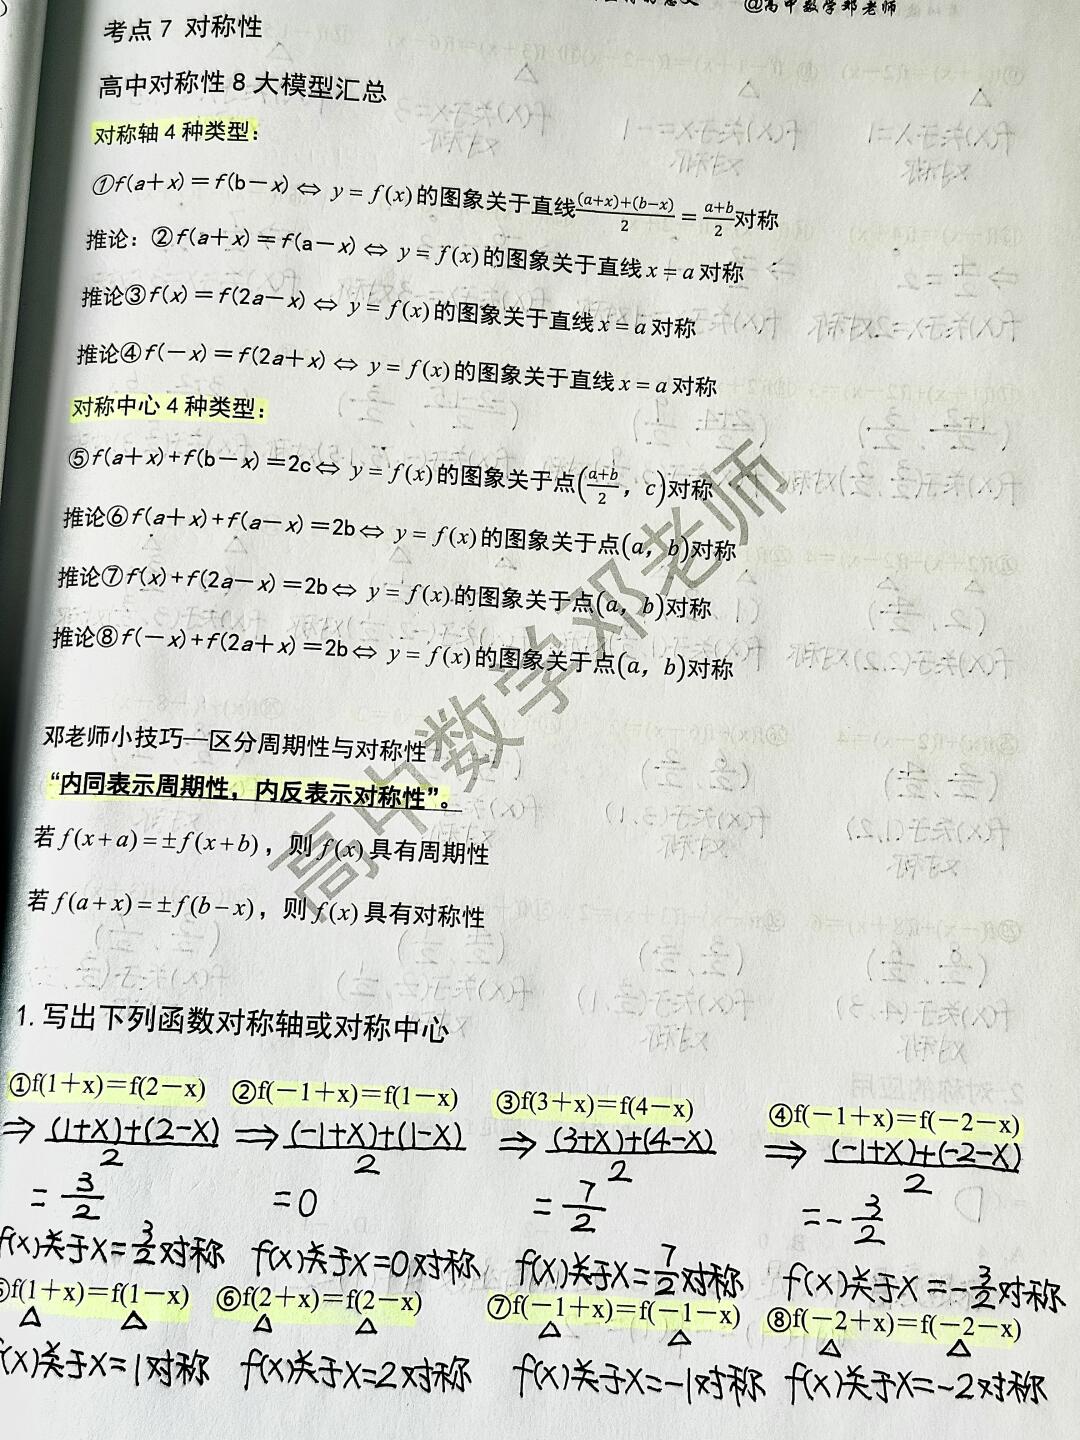 @高中数学邓老师
考点7 对称性
高中对称性8大模型汇总
对称轴4种类型：
①f(a＋x)＝f(b－x)⇔ y＝f(x)的图象关于直线\frac{(a+x)+(b−x)}{2}＝\frac{a+b}{2}对称
推论：②f(a＋x)＝f(a－x)⇔ y＝f(x)的图象关于直线x＝a对称
推论③f(x)＝f(2a－x)⇔ y＝f(x)的图象关于直线x＝a对称
推论④f(－x)＝f(2a＋x)⇔ y＝f(x)的图象关于直线x＝a对称
对称中心4种类型：
⑤f(a＋x)+f(b－x)＝2c⇔ y＝f(x)的图象关于点(\frac{a+b}{2}，c)对称
推论⑥f(a＋x)+f(a－x)＝2b⇔ y＝f(x)的图象关于点(a，b)对称
推论⑦f(x)+f(2a－x)＝2b⇔ y＝f(x).的图象关于点(a，b)对称
推论⑧f(－x)+f(2a＋x)＝2b⇔ y＝f(x)的图象关于点(a，b)对称
高中数学邓老师
邓老师小技巧—区分周期性与对称性
“内同表示周期性，内反表示对称性”。
若f(x+a)＝±f(x+b)，则f(x)具有周期性
若f(a+x)＝±f(b−x)，则f(x)具有对称性
1.写出下列函数对称轴或对称中心
①f(1＋x)＝f(2－x) ②f(－1＋x)＝f(1－x) ③f(3＋x)＝f(4－x) ④f(－1＋x)＝f(－2－x)
⇒ \frac{(1+X)+(2-X)}{2} ⇒ \frac{(-1+X)+(1-X)}{2} ⇒ \frac{(3+X)+(4-X)}{2} ⇒ \frac{(-1+X)+(-2-X)}{2}
= \frac{3}{2} =0 = \frac{7}{2} =-\frac{3}{2}
f(X)关于X=\frac{3}{2}对称 f(X)关于X=0对称 f(X)关于X=\frac{7}{2}对称 f(X)关于X=-\frac{3}{2}对称
⑤f(1＋x)＝f(1－x) ⑥f(2＋x)＝f(2－x) ⑦f(－1＋x)＝f(－1－x) ⑧f(－2＋x)＝f(－2－x)
f(X)关于X=1对称 f(X)关于X=2对称 f(X)关于X=-1对称 f(X)关于X=-2对称